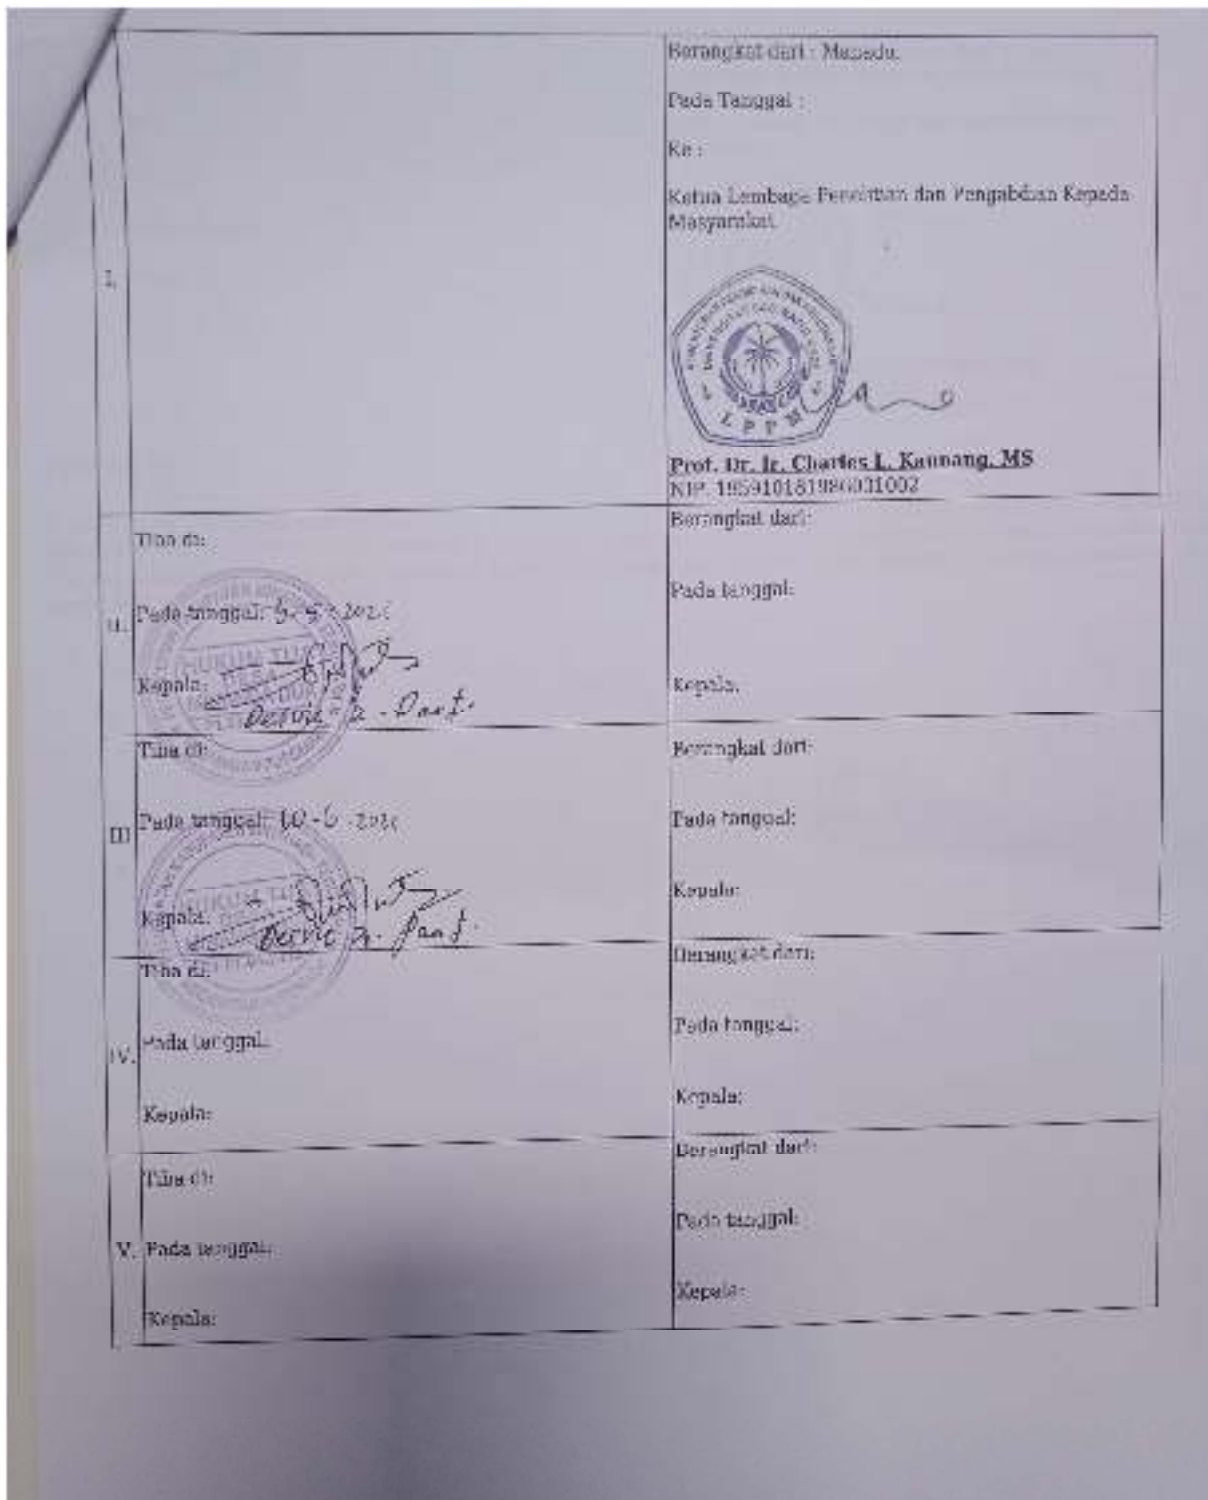 I.
Berangkat dari : Manado.
Pada Tanggal :
Ke :
Ketua Lembaga Penelitian dan Pengabdian Kepada
Masyarakat.
LPPM
Prof. Dr. Ir. Charles L. Kaunang, MS
NIP. 195910181986031002
II.
Tiba di:
Pada tanggal:
HUKUM TUA
DESA
Kepala:
Berangkat dari:
Pada tanggal:
Kepala:
III
Tiba di:
Pada tanggal: 10-6-
HUKUM TUA
Kepala:
Berangkat dari:
Pada tanggal:
Kepala:
IV.
Tiba di:
Pada tanggal:
Kepala:
Berangkat dari:
Pada tanggal:
Kepala:
V.
Tiba di:
Pada tanggal:
Kepala:
Berangkat dari:
Pada tanggal:
Kepala: